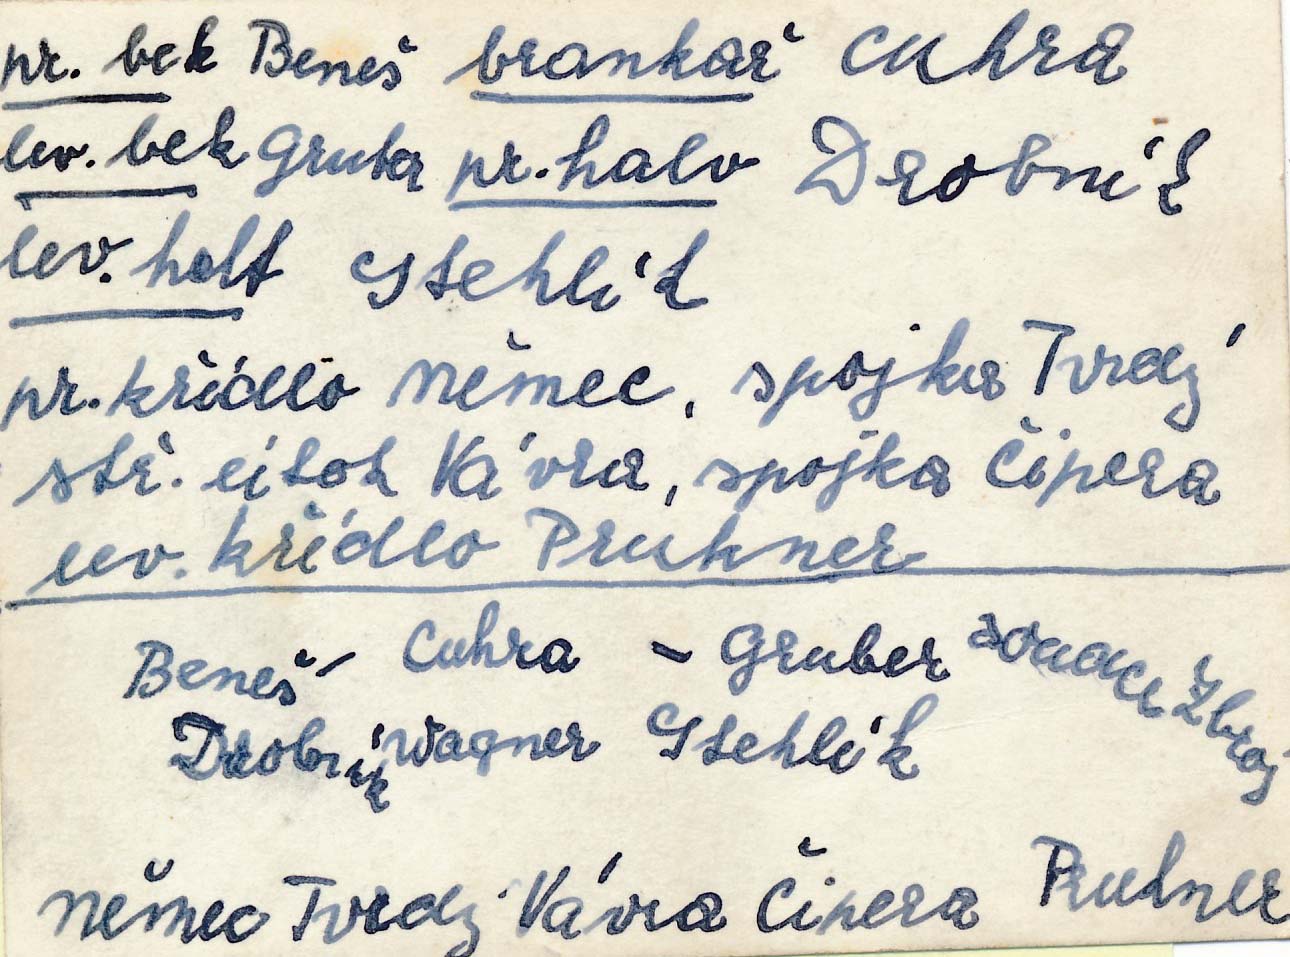 pr. bek Beneš brankař Cuhra
lev. bek Gruba pr. halv Drobník
lev. half Stehlík
pr. křídlo Němec, spojka Tvrdý
stř. Vávra, spojka Čipera
lev. křídlo Pruhner
Beneš - Cuhra - Gruber
Drobník Wagner Stehlík
Němec Tvrdý Vávra Čipera Pruhner